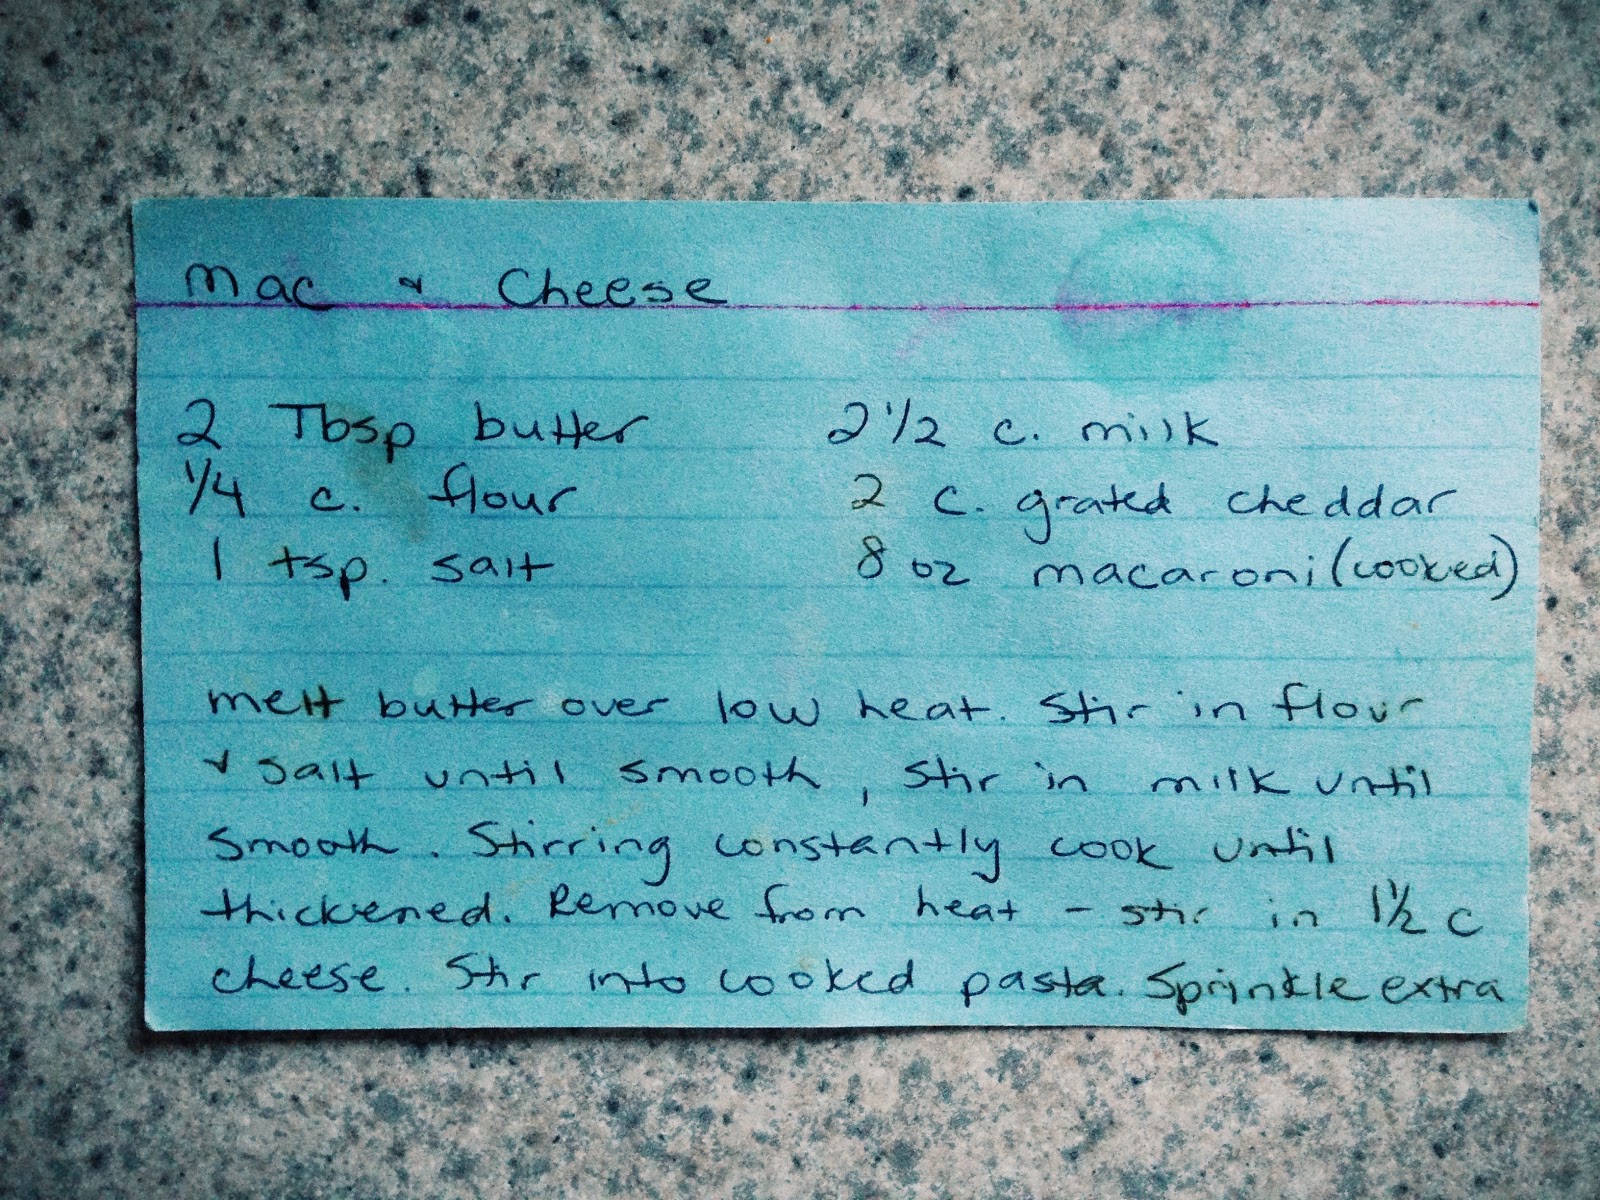 Mac & Cheese
2 Tbsp butter
1/4 c. flour
1 tsp. salt
2 1/2 c. milk
2 c. grated cheddar
8 oz macaroni (cooked)
melt butter over low heat. Stir in flour
& salt until smooth, stir in milk until
smooth. Stirring constantly cook until
thickened. Remove from heat - stir in 1 1/2 c
cheese. Stir into cooked pasta. Sprinkle extra